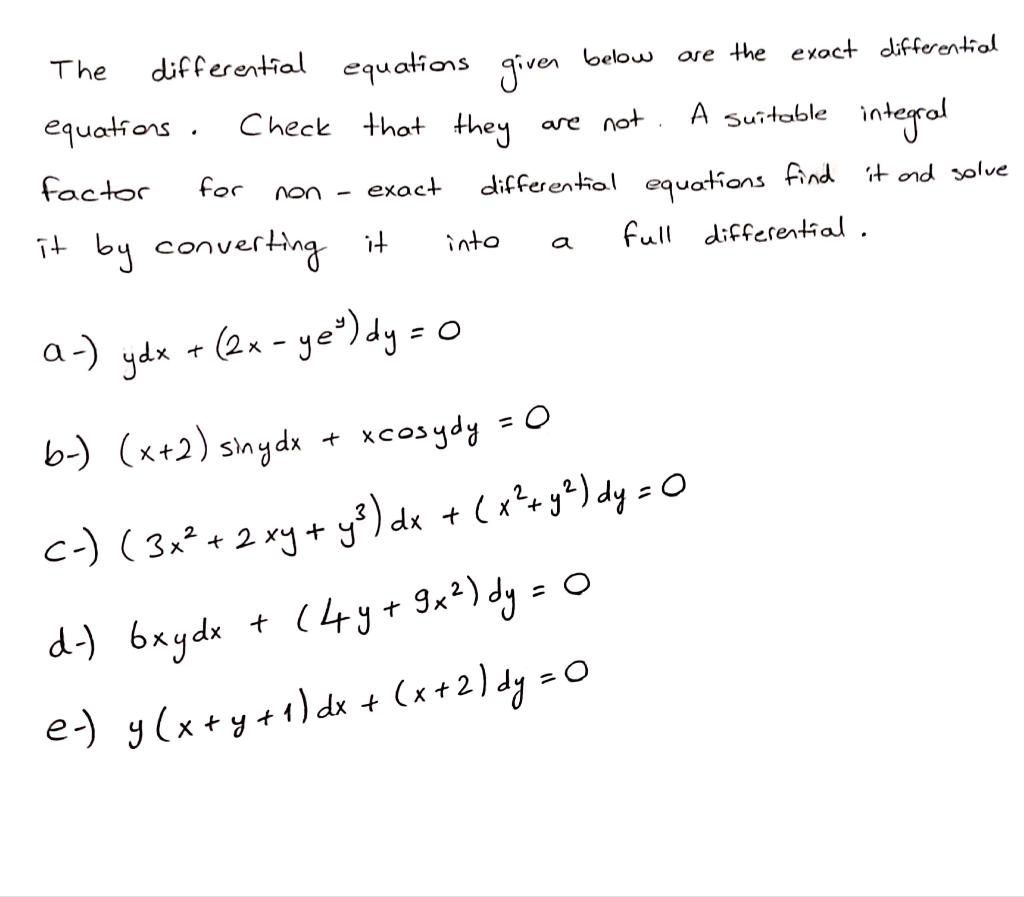 The differential equations given below are the exact differential
equations. Check that they are not. A suitable integral
factor for non-exact differential equations find it and solve
it by converting it into a full differential.
a-) ydx + (2x - ye^y)dy = 0
b-) (x+2) sinydx + xcosydy = 0
c-) (3x² + 2xy + y³)dx + (x² + y²)dy = 0
d-) 6xydx + (4y + 9x²)dy = 0
e-) y(x+y+1)dx + (x+2)dy = 0